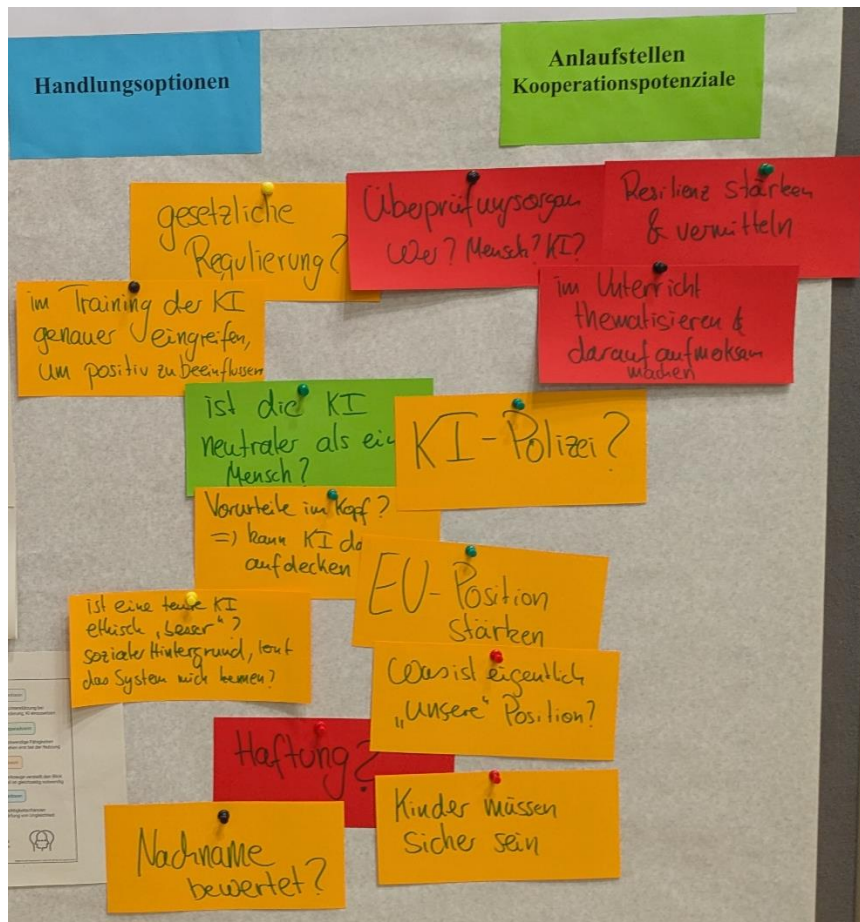 Handlungsoptionen
Anlaufstellen
Kooperationspotenziale
gesetzliche
Regulierung?
Überprüfungsorgan
Wer? Mensch? KI?
Resilienz stärken
& vermitteln
im Training der KI
genauer eingreifen,
um positiv zu beeinflussen
im Unterricht
thematisieren &
darauf aufmerksam
machen
ist die KI
neutraler als ein
Mensch?
KI-Polizei?
Vorurteile im Kopf?
=> kann KI da
aufdecken
EU-Position
stärken
ist eine teure KI
ethisch „besser“?
sozialer Hintergrund, lernt
das System mich kennen?
Was ist eigentlich
„unsere“ Position?
Haftung?
Kinder müssen
sicher sein
Nachname
bewertet?